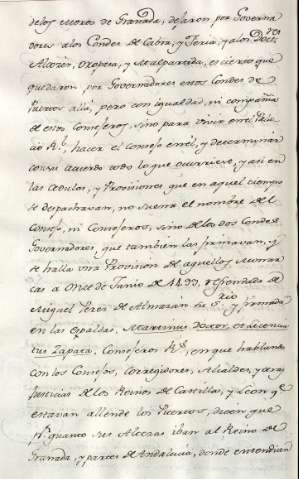 de los moros de Granada, dejaron por Governa
dores a los Condes de Cabra, y Feria, y a los D.res
Alcozer, Oropesa, y Malpartida, es cierto que
quedaron por Governadores estos Condes de
Puertos allá, pero con igualdad, ni compañia
de estos Consejeros, sino para vivir en el Pala
cio R.l, hacer el Consejo en él, y determinar
con su acuerdo todo lo que ocurriese, y asi en
las Cedulas, y Provisiones, que en aquel tiempo
se despachavan, no suena el nombre del
Consejo, ni Consejeros, sino de los dos Condes
Governadores, que tambien las firmavan, y
se halla una Provision de aquellos Monar
cas a Once de Junio de 1499, refrendada de
Miguel Perez de Almazan su S.rio y firmada
en las espaldas, Martinus Doctor, et Licencia
tus Zapata, Consejeros R.s, en que hablan
con los Consejos, Corregidores, Alcaldes, y otras
Justicias de los Reinos de Castilla, y Leon q.e
estavan allende los Puertos, dicen que
p.r quanto Sus Altezas iban al Reino de
Granada, y partes de Andalucia, donde entendian